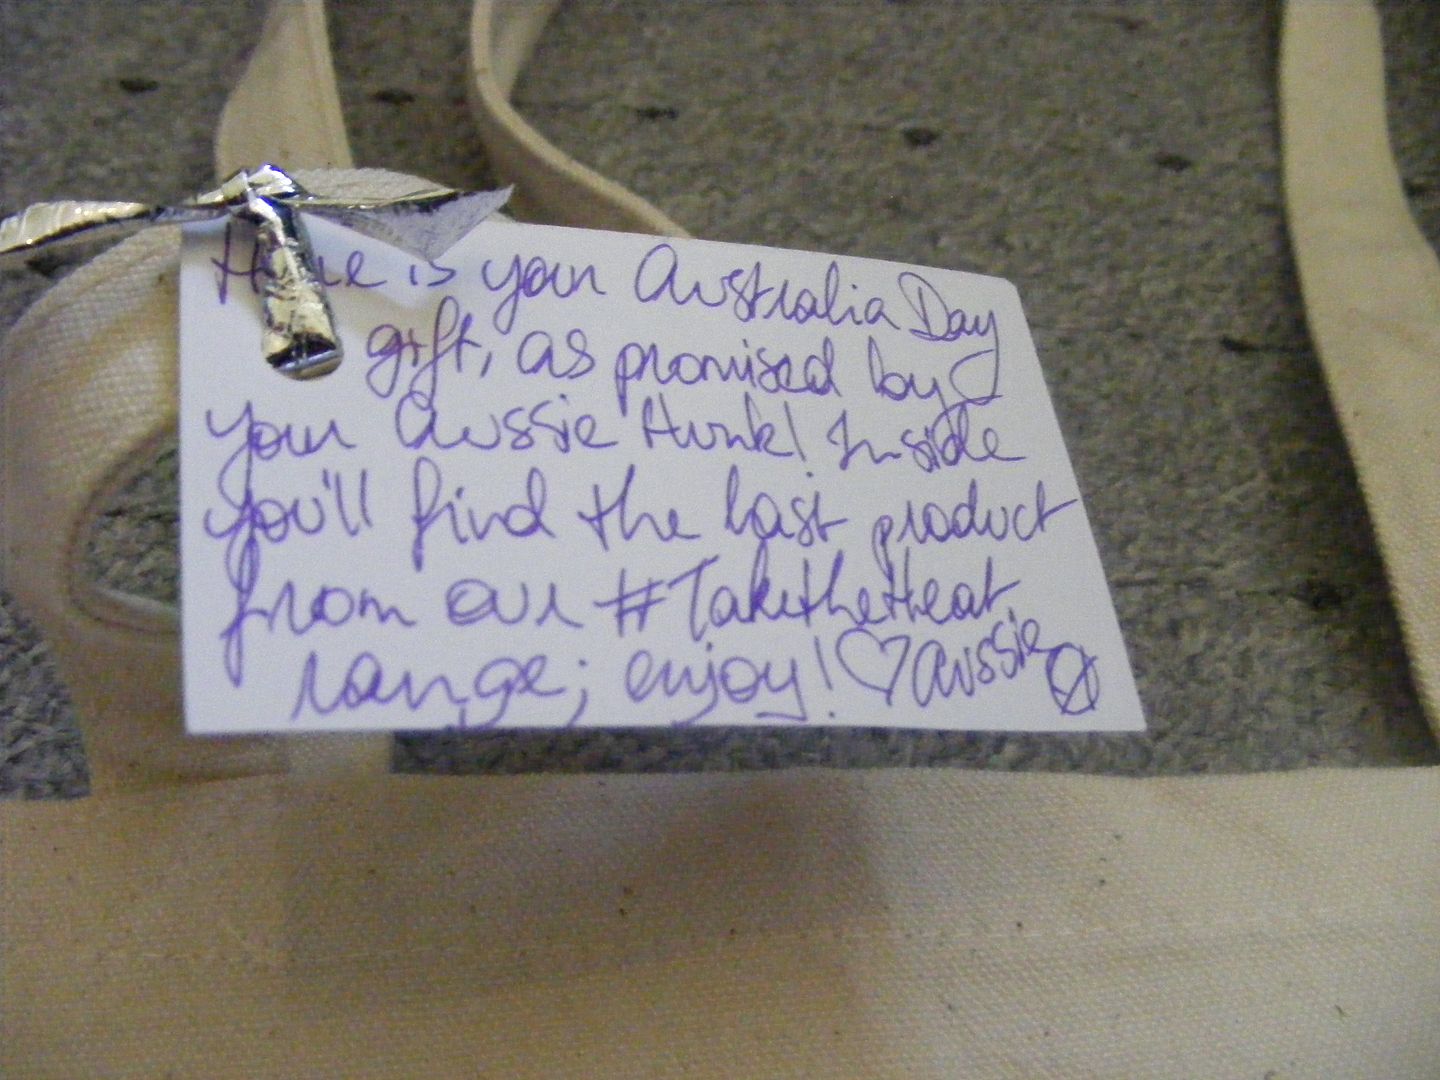 Here is your Australia Day
gift, as promised by
your Aussie Hunk! Inside
you'll find the last product
from our #TaketheHeat
range; enjoy! ♡ Aussie